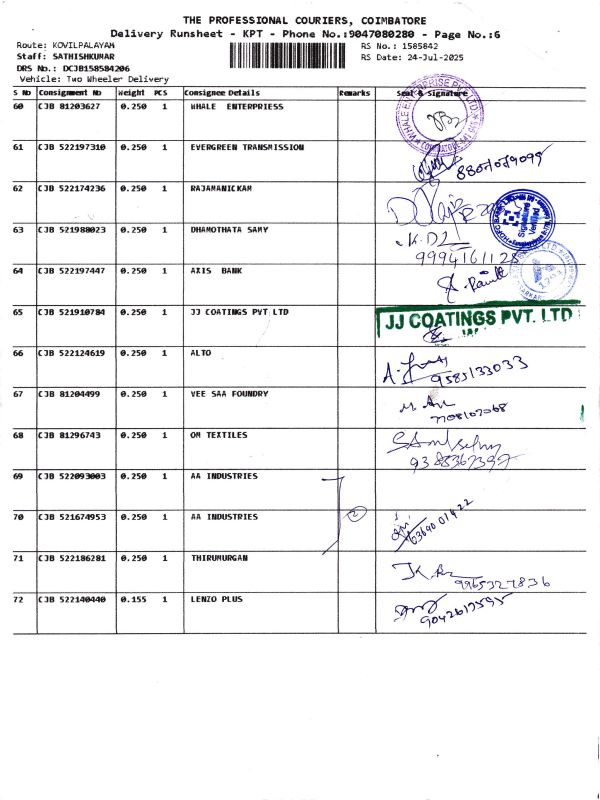 THE PROFESSIONAL COURIERS, COIMBATORE
Delivery Runsheet - KPT - Phone No.:9047080280 - Page No.:6
Route: KOVILPALAYAM RS No.: 1585842
Staff: SATHISHKUMAR RS Date: 24-Jul-2025
DRS No.: DCJB158584206
Vehicle: Two Wheeler Delivery
S No Consignment No Weight PCS Consignee Details Remarks Seal & Signature
60 CJB 81203627 0.250 1 WHALE ENTERPRIESS
61 CJB 522197310 0.250 1 EVERGREEN TRANSMISSION
62 CJB 522174236 0.250 1 RAJAMANICKAM
63 CJB 521988023 0.250 1 DHAMOTHATA SAMY K.D
9994161128
64 CJB 522197447 0.250 1 AXIS BANK
65 CJB 521910784 0.250 1 JJ COATINGS PVT LTD JJ COATINGS PVT. LTD
66 CJB 522124619 0.250 1 ALTO 9585133033
67 CJB 81204499 0.250 1 VEE SAA FOUNDRY
68 CJB 81296743 0.250 1 OM TEXTILES
69 CJB 522093003 0.250 1 AA INDUSTRIES
70 CJB 521674953 0.250 1 AA INDUSTRIES 2
71 CJB 522186281 0.250 1 THIRUMURGAN
72 CJB 522140440 0.155 1 LENZO PLUS